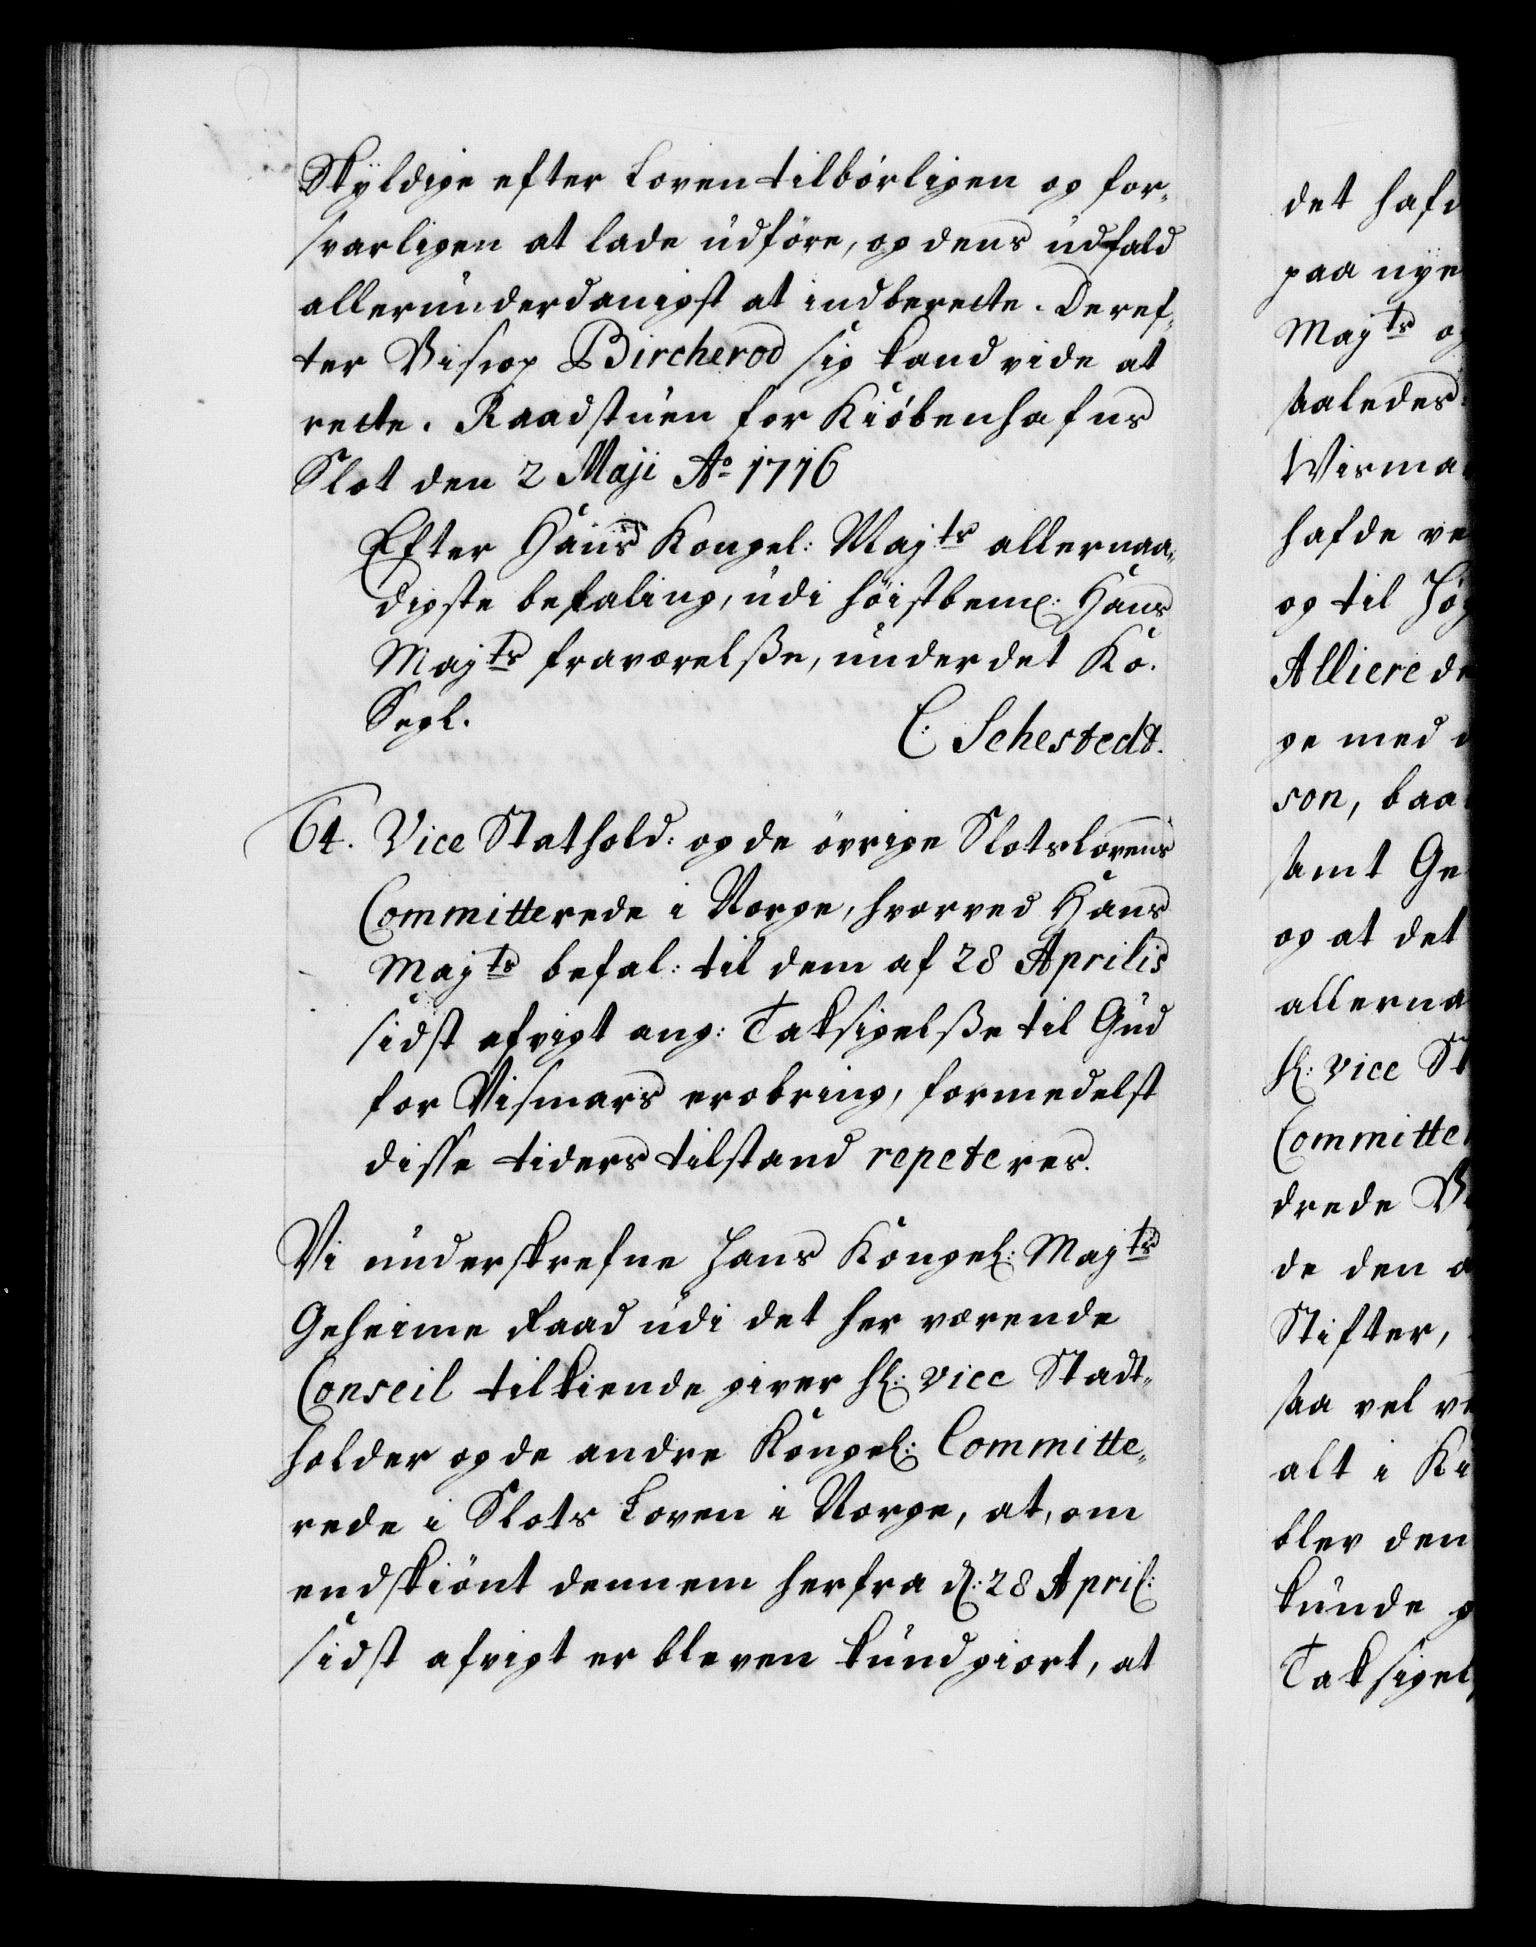 Skyldige efter Loven tilbörligen og for-
svarligen at lade udföre, og dens udfald
allerunderdanigst at indberette. Deref-
ter Biscop Bircherod sig kand vide at
rette. Raadstuen for Kiöbenhafns
Slot den 2 Maji Ao 1716
Efter Hans Kongel: Majts allernaa-
digste befaling, udi höistbeml: Hans
Majts fraværelße, under det Ko.
Segl.
C. Sehestedt.
64. Vice Stathold: og de övrige Slotslovens
Committerede i Norge, hvorved Hans
Majts befal: til dem af 28 Aprilis
sidst afvigt ang: Taksigelße til Gud
for Vismars erobring, formedelst
disse tiders tilstand repeteres.
Vi underskrefne Hans Kongel: Majts
Geheime Raad udi det her værende
Conseil tilkiende giver hl: vice Stadt-
holder og de andre Kongel: Committe-
rede i Slots Loven i Norge, at, om
endskiönt dennem herfra d: 28 April:
sidst afvigt er bleven kundgiort, at
det hafd
paa nye
Majts og
saaledes
Wisma
hafde ve
og til Hög
Allierede
ge med d
son, baa
samt Ge
og at det
allerna
hl: vice St
Committe
drede V
de den a
Stifter,
saa vel ve
alt i Ki
blev den
kunde g
Taksigels